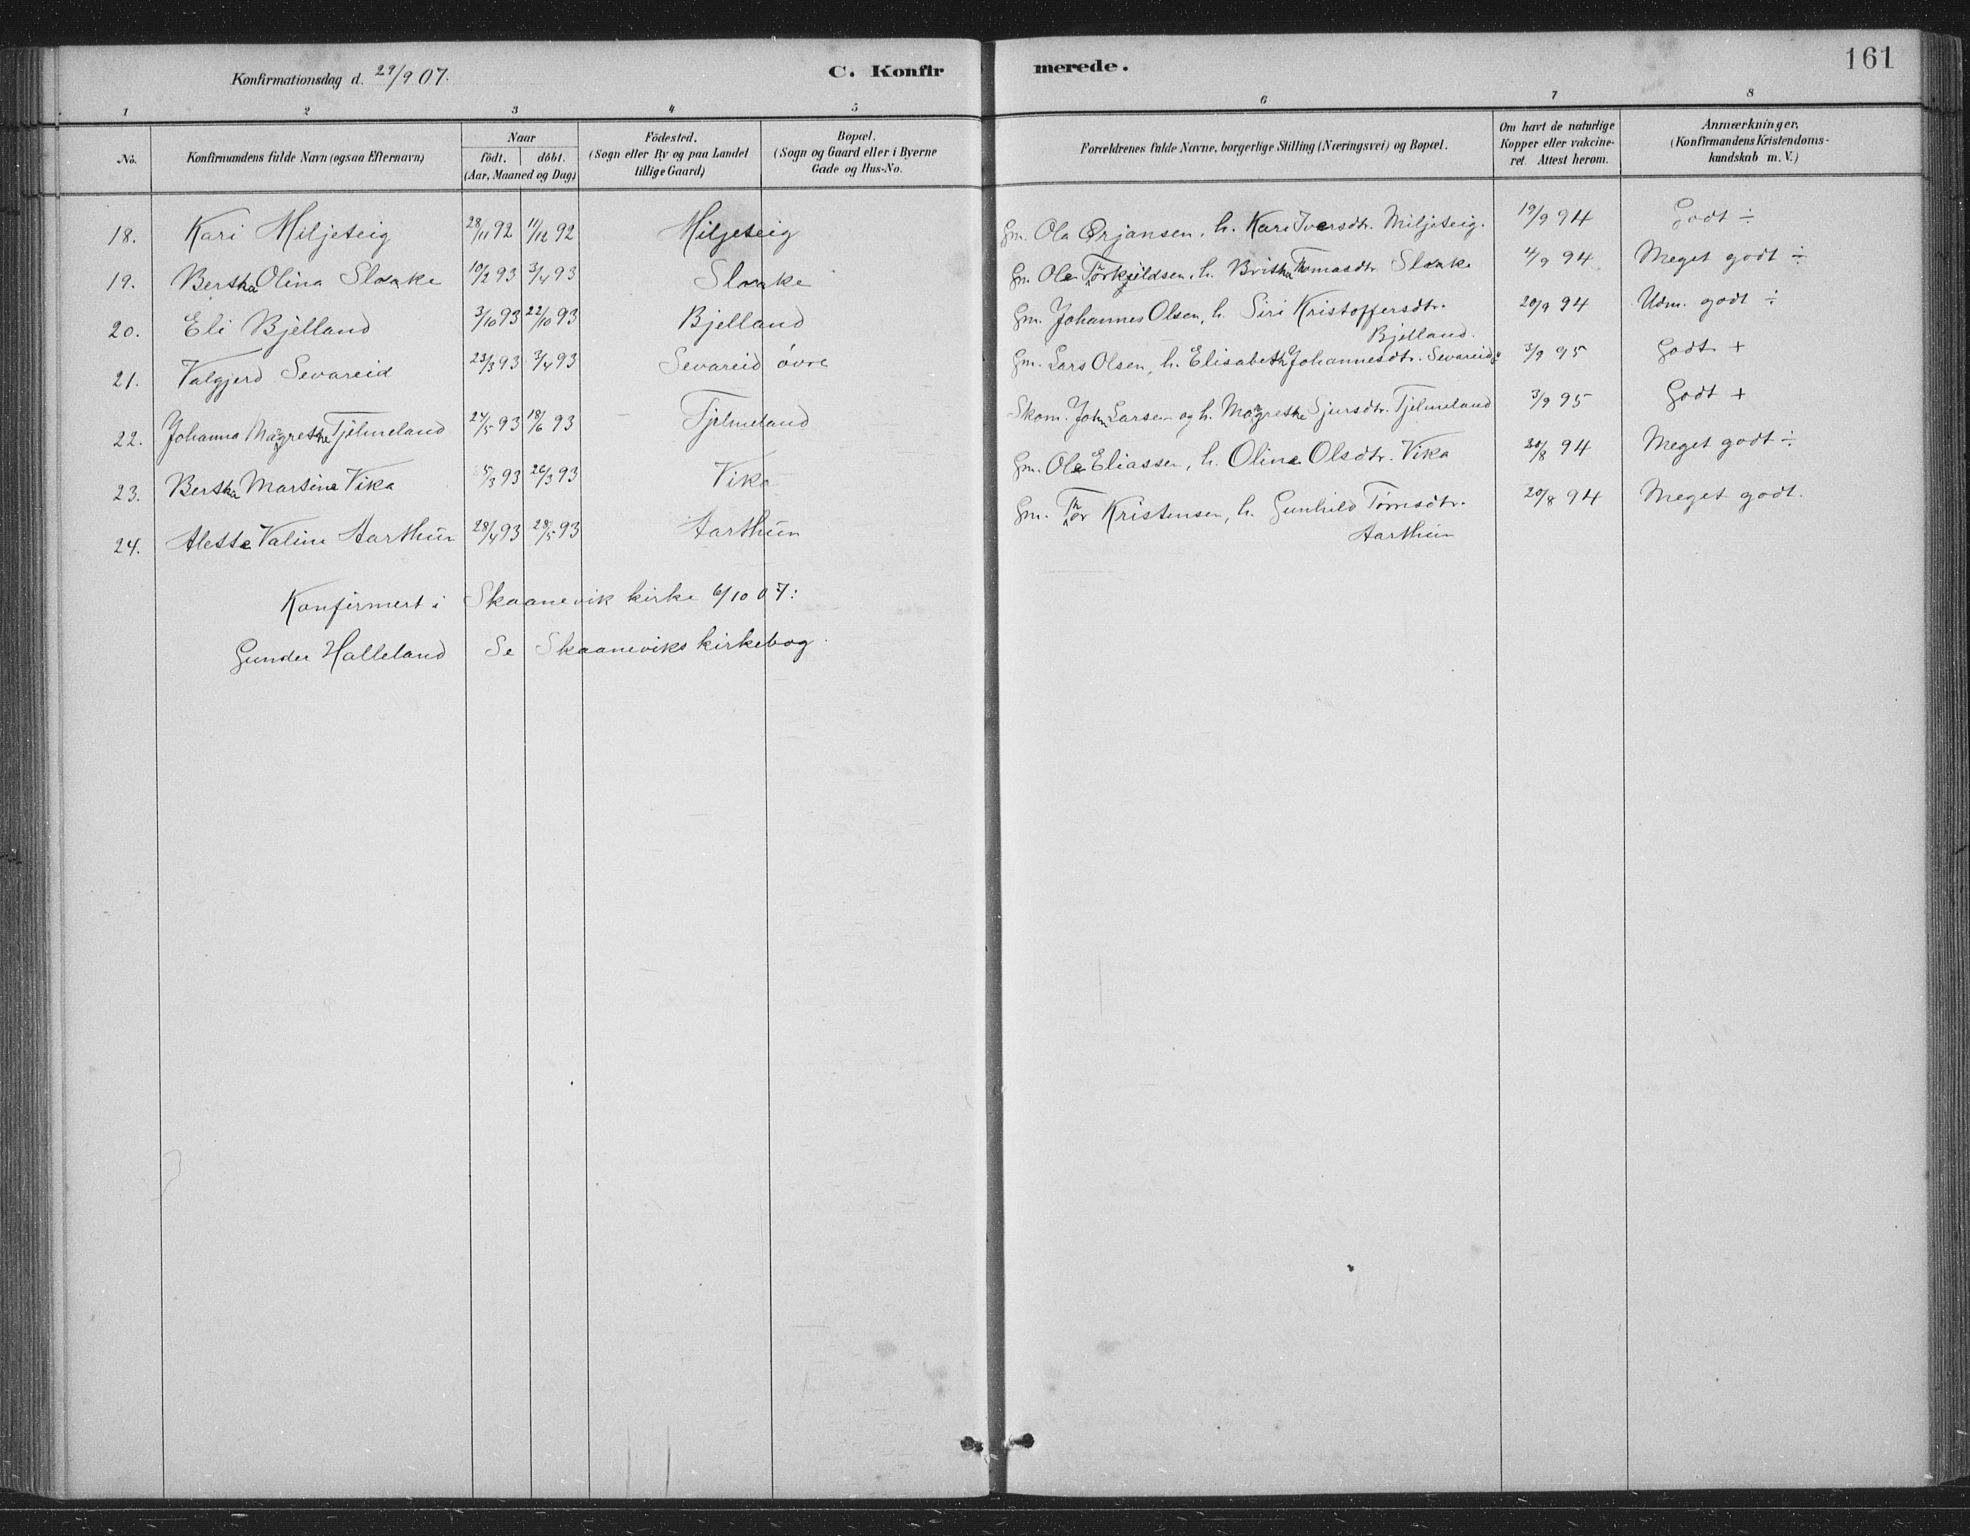 161
Konfirmationsdag d. 29/9 07.
C. Konfirmerede.
1 2 3 4 5 6 7 8
No.
Konfirmandens fulde Navn (ogsaa Efternavn)
Naar
födt. döbt.
(Aar, Maaned og Dag)
Födested.
(Sogn eller By og paa Landet
tillige Gaard)
Bopæl.
(Sogn og Gaard eller i Byerne
Gade og Hus-No.
Forældrenes fulde Navne, borgerlige Stilling (Næringsvei) og Bopæl.
Om havt de naturlige
Kopper eller vakcine-
ret. Attest herom.
Anmærkninger.
(Konfirmandens Kristendoms-
kundskab m. V.)
18. Kari Miljeteig 28/11 92 11/12 92 Miljeteig Gm. Ola Ørjansen, h. Kari Iversdtr. Miljeteig. 19/9 94 Godt ÷
19. Bertha Olina Slaake 10/2 93 3/4 93 Slaake Gm. Ole Torkjeldsen, h. Britha Thomasdtr. Slaake 11/9 94 Meget godt ÷
20. Eli Bjelland 3/10 93 22/10 93 Bjelland Gm. Johannes Olsen, h. Siri Kristoffersdtr. Bjelland. 20/9 94 Udm. godt ÷
21. Valgjerd Sevareid 23/3 93 3/4 93 Sevareid övre Gm. Lars Olsen, h. Elisabeth Johannesdtr. Sevareid 3/9 95 Godt +
22. Johanna Magrethe Tjelmeland 27/5 93 18/6 93 Tjelmeland Skom. John Larsen og h. Magrethe Sjursdtr. Tjelmeland 3/9 95 Godt +
23. Bertha Martine Vika 5/3 93 26/3 93 Vika Gm. Ole Eliassen, h. Oline Olsdtr. Vika 20/8 94 Meget godt ÷
24. Alette Valine Aarthun 28/4 93 28/5 93 Aarthun Gm. Thor Kristensen, h. Gunhild Tørresdtr. Aarthun 20/8 94 Meget godt.
Konfirmert i Skaanevik kirke 6/10 07:
Gunder Halleland Se Skaaneviks kirkebog.